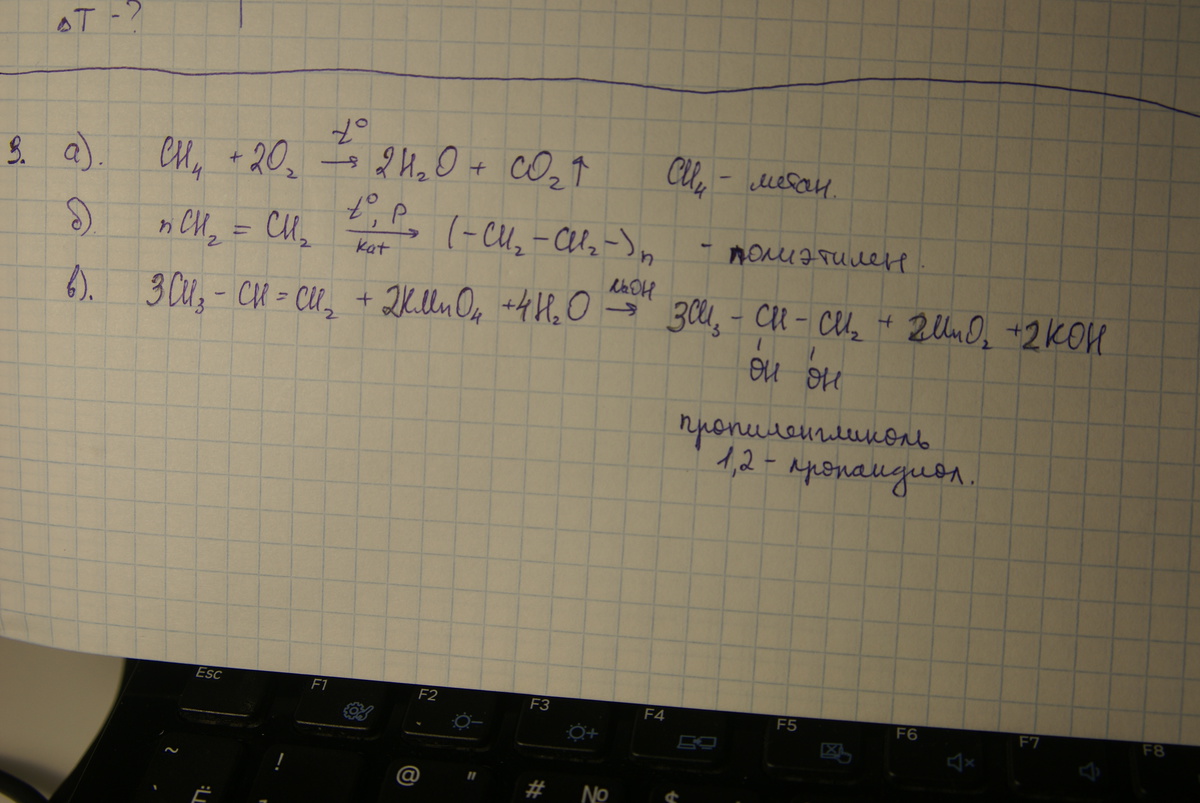 ΔT - ?
3. а). CH₄ + 2O₂ →(t°) 2H₂O + CO₂↑ CH₄ - метан.
б). nCH₂ = CH₂ →(t°, P / kat) (-CH₂-CH₂-)ₙ - полиэтилен.
в). 3CH₃-CH=CH₂ + 2KMnO₄ + 4H₂O →(NaOH) 3CH₃-CH-CH₂ + 2MnO₂ + 2KOH
OH OH
пропиленгликоль
1,2 - пропандиол.
Esc F1 F2 F3 F4 F5 F6 F7 F8
~ ! @ " # № $
` Ё